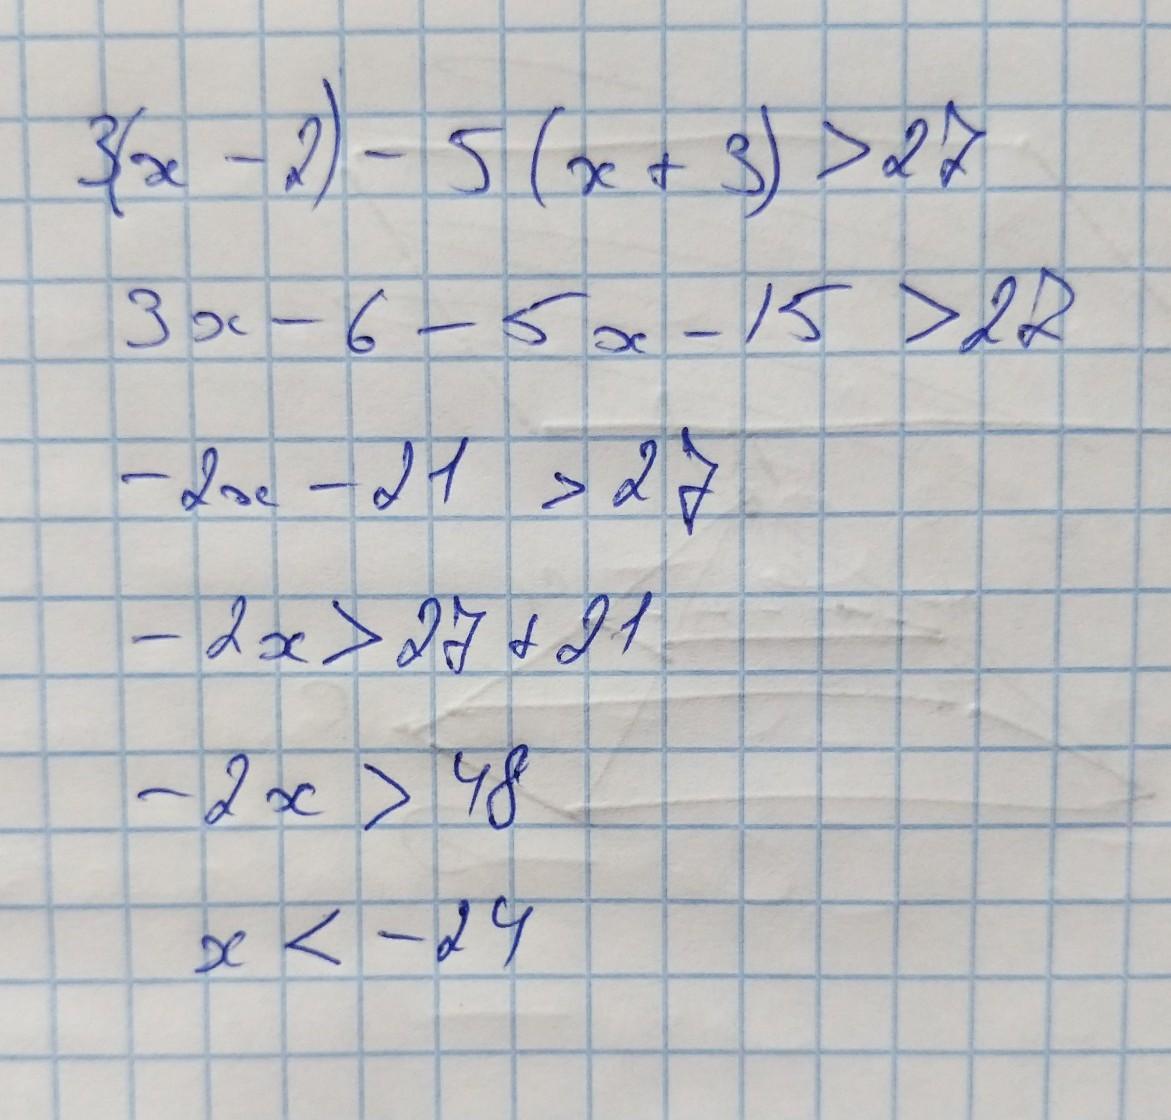 3(x - 2) - 5(x + 3) > 27
3x - 6 - 5x - 15 > 27
-2x - 21 > 27
-2x > 27 + 21
-2x > 48
x < -24